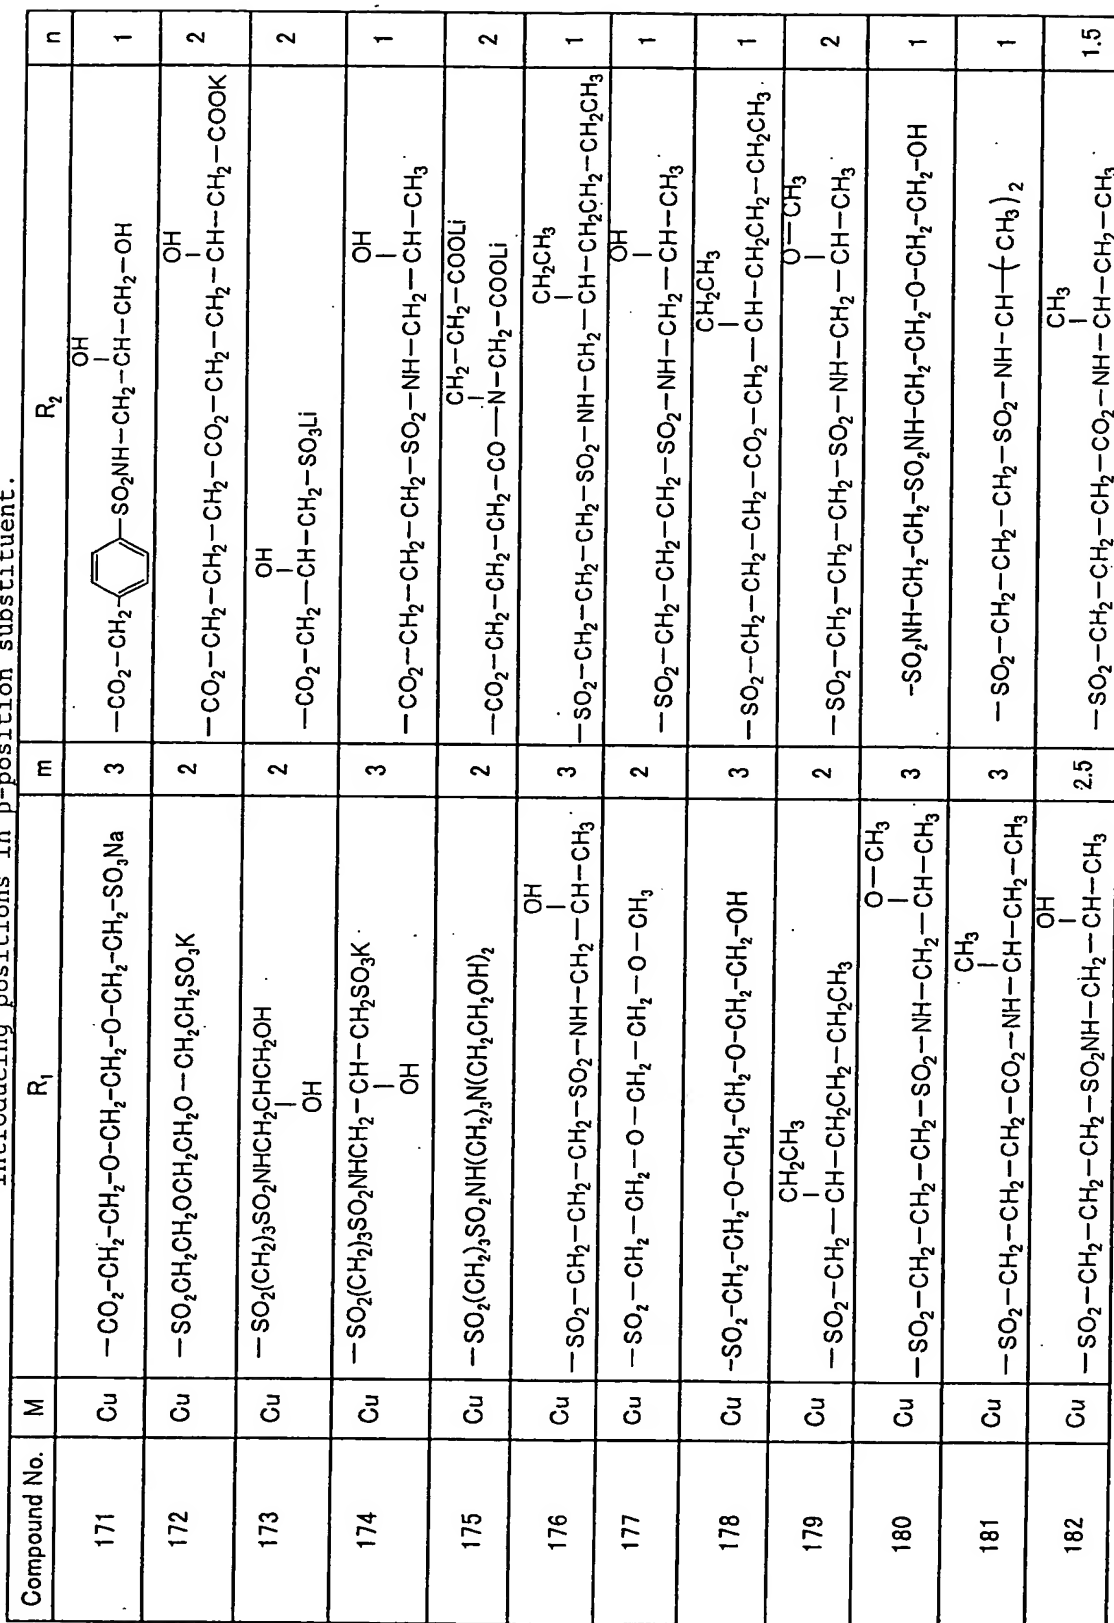 introducing positions in β-position substituent.
Compound No. M R₁ m R₂ n
171 Cu —CO₂-CH₂-CH₂-O-CH₂-CH₂-O-CH₂-CH₂-SO₃Na 3 —CO₂-CH₂-⌬-SO₂NH-CH₂-CH(OH)-CH₂-OH 1
172 Cu —SO₂CH₂CH₂OCH₂CH₂O—CH₂CH₂SO₃K 2 —CO₂-CH₂-CH₂-CH₂-CO₂-CH₂-CH₂-CH(OH)-CH₂-COOK 2
173 Cu —SO₂(CH₂)₃SO₂NHCH₂CH(OH)CH₂OH 2 —CO₂-CH₂-CH(OH)-CH₂-SO₃Li 2
174 Cu —SO₂(CH₂)₃SO₂NHCH₂-CH(OH)-CH₂SO₃K 3 —CO₂-CH₂-CH₂-CH₂-SO₂-NH-CH₂-CH(OH)-CH₃ 1
175 Cu —SO₂(CH₂)₃SO₂NH(CH₂)₃N(CH₂CH₂OH)₂ 2 —CO₂-CH₂-CH₂-CH₂-CO-N(CH₂-CH₂-COOLi)-CH₂-COOLi 2
176 Cu —SO₂-CH₂-CH₂-CH₂-SO₂-NH-CH₂-CH(OH)-CH₃ 3 —SO₂-CH₂-CH₂-CH₂-SO₂-NH-CH₂-CH(CH₂CH₃)-CH₂CH₂-CH₂CH₃ 1
177 Cu —SO₂-CH₂-CH₂-O-CH₂-CH₂-O-CH₃ 2 —SO₂-CH₂-CH₂-CH₂-SO₂-NH-CH₂-CH(OH)-CH₃ 1
178 Cu -SO₂-CH₂-CH₂-O-CH₂-CH₂-O-CH₂-CH₂-OH 3 —SO₂-CH₂-CH₂-CH₂-CO₂-CH₂-CH(CH₂CH₃)-CH₂CH₂-CH₂CH₃ 1
179 Cu —SO₂-CH₂-CH(CH₂CH₃)-CH₂CH₂-CH₂CH₃ 2 —SO₂-CH₂-CH₂-CH₂-SO₂-NH-CH₂-CH(O-CH₃)-CH₃ 2
180 Cu —SO₂-CH₂-CH₂-CH₂-SO₂-NH-CH₂-CH(O-CH₃)-CH₃ 3 -SO₂NH-CH₂-CH₂-SO₂NH-CH₂-CH₂-O-CH₂-CH₂-OH 1
181 Cu —SO₂-CH₂-CH₂-CH₂-CO₂-NH-CH(CH₃)-CH₂-CH₃ 3 —SO₂-CH₂-CH₂-CH₂-SO₂-NH-CH-(CH₃)₂ 1
182 Cu —SO₂-CH₂-CH₂-CH₂-SO₂NH-CH₂-CH(OH)-CH₃ 2.5 —SO₂-CH₂-CH₂-CH₂-CO₂-NH-CH(CH₃)-CH₂-CH₃ 1.5